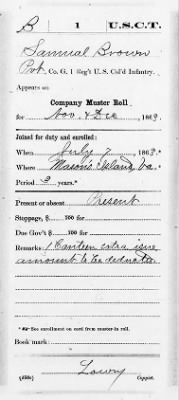 B 1 U.S.C.T.
Samuel Brown
Pvt, Co. G, 1 Reg't U. S. Col'd Infantry.
Appears on
Company Muster Roll
for Nov. & Dec, 1863.
Joined for duty and enrolled:
When July 7, 1863.*
Where Mason's Island, Va.
Period 3 years.*
Present or absent Present
Stoppage, $ 100 for
Due Gov't $ 100 for
Remarks: 1 Canteen extra issue
amount to be deducted
* See enrollment on card from muster-in roll.
Book mark:
Lowry
(358c) Copyist.